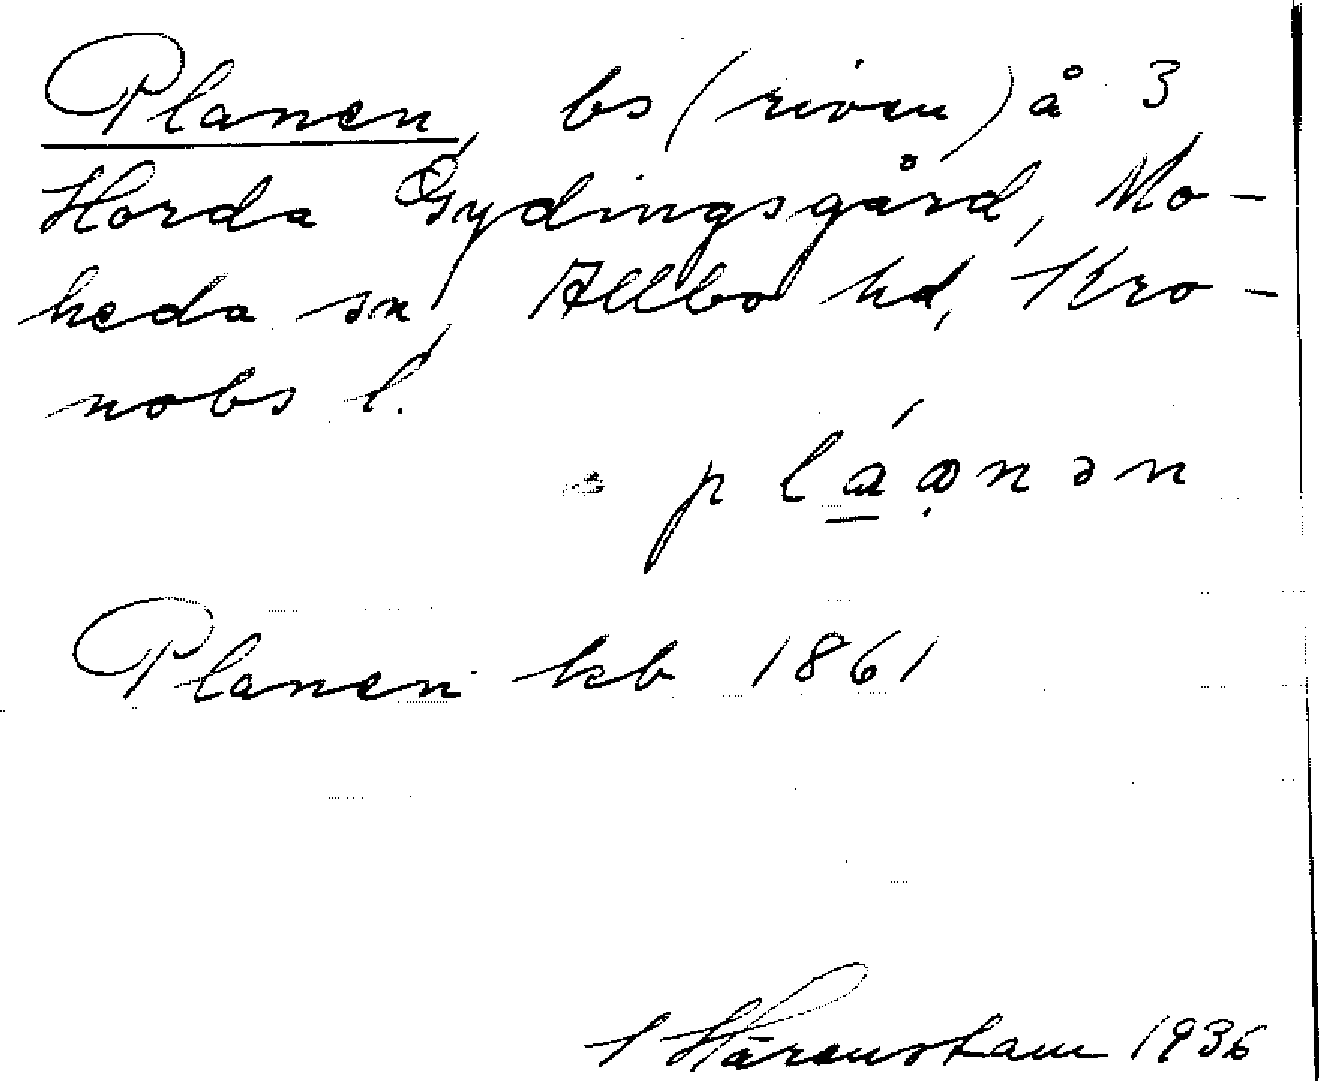 Planen, bs (riven) å 3
Horda Gydingsgård, Mo-
heda sn, Allbo hd, Kro-
nobs l.
pláo̤nən
Planen kb 1861
1936